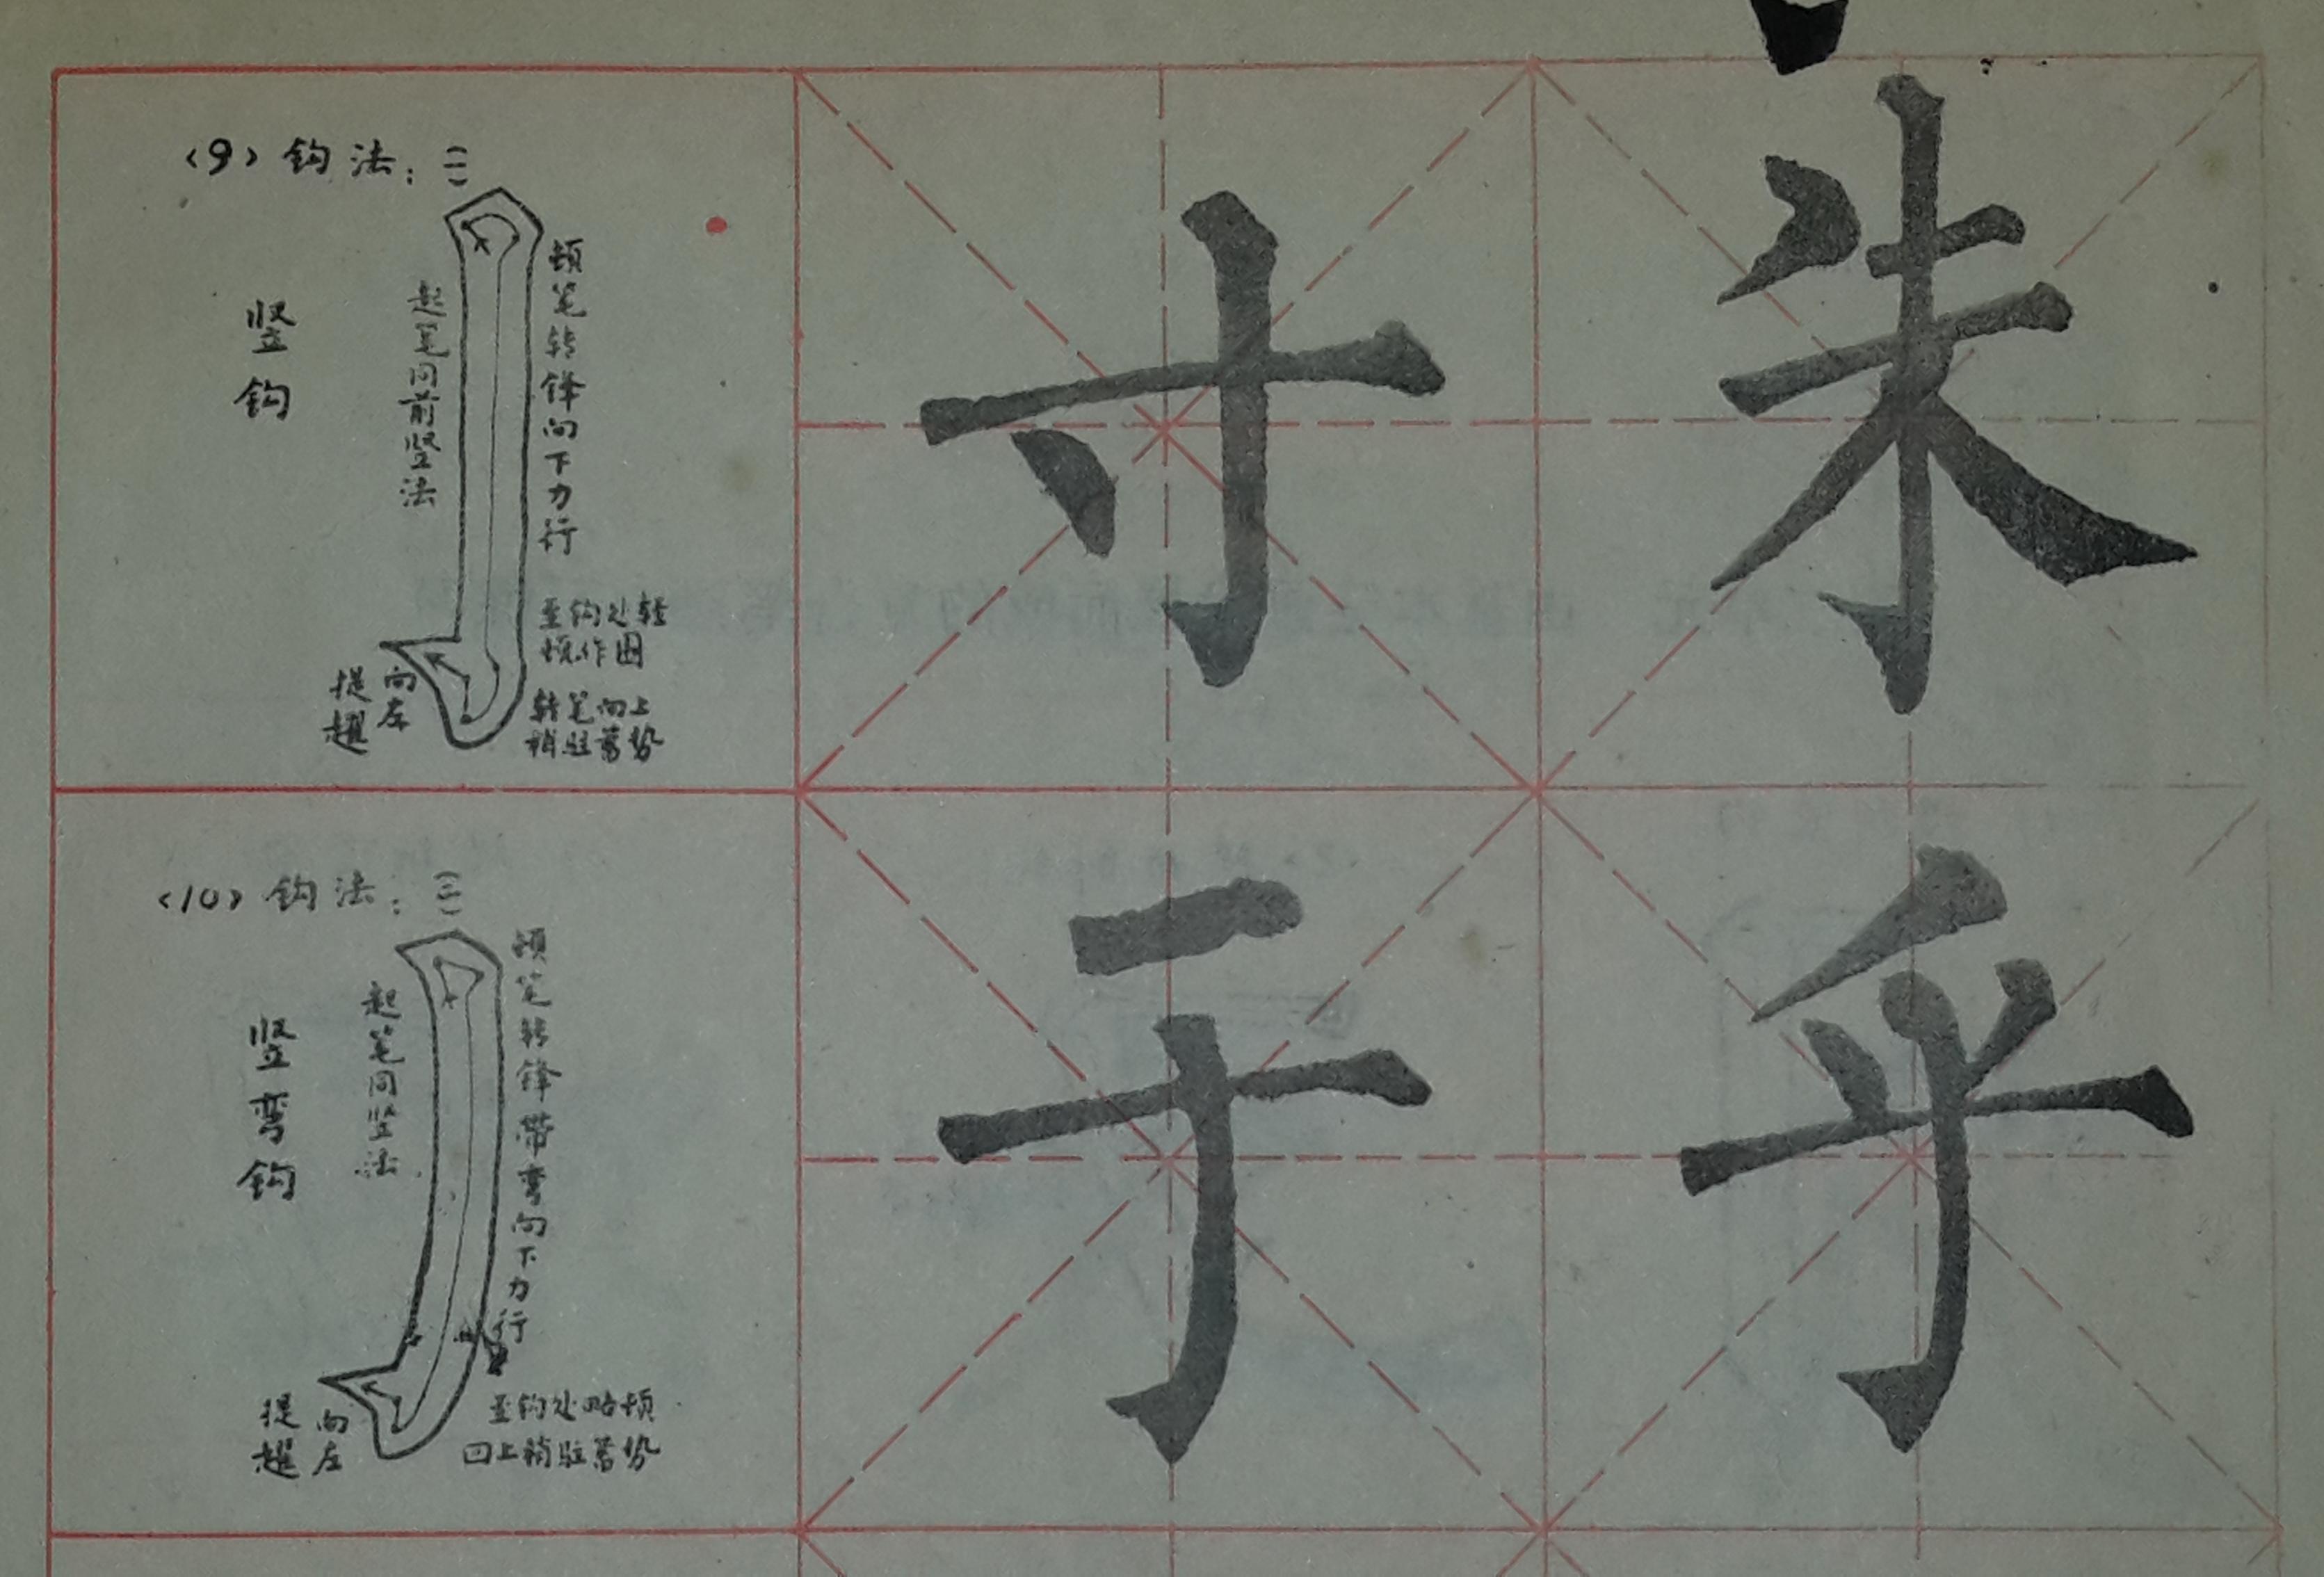 〈9〉钩法：(一)
竖钩
起笔同前竖法
顿笔转锋向下力行
至钩处轻
顿作围
转笔向上
稍驻蓄势
向左
提趯
寸
朱
〈10〉钩法：(二)
竖弯钩
起笔同竖法
顿笔转锋带弯向下力行
至钩处略顿
回上稍驻蓄势
向左
提趯
于
乎